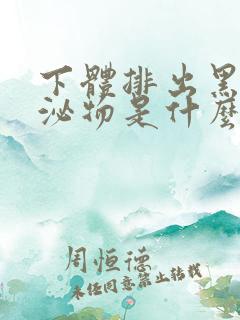 下體排出黑
泌物是什麼
周恒德
未经同意禁止转载